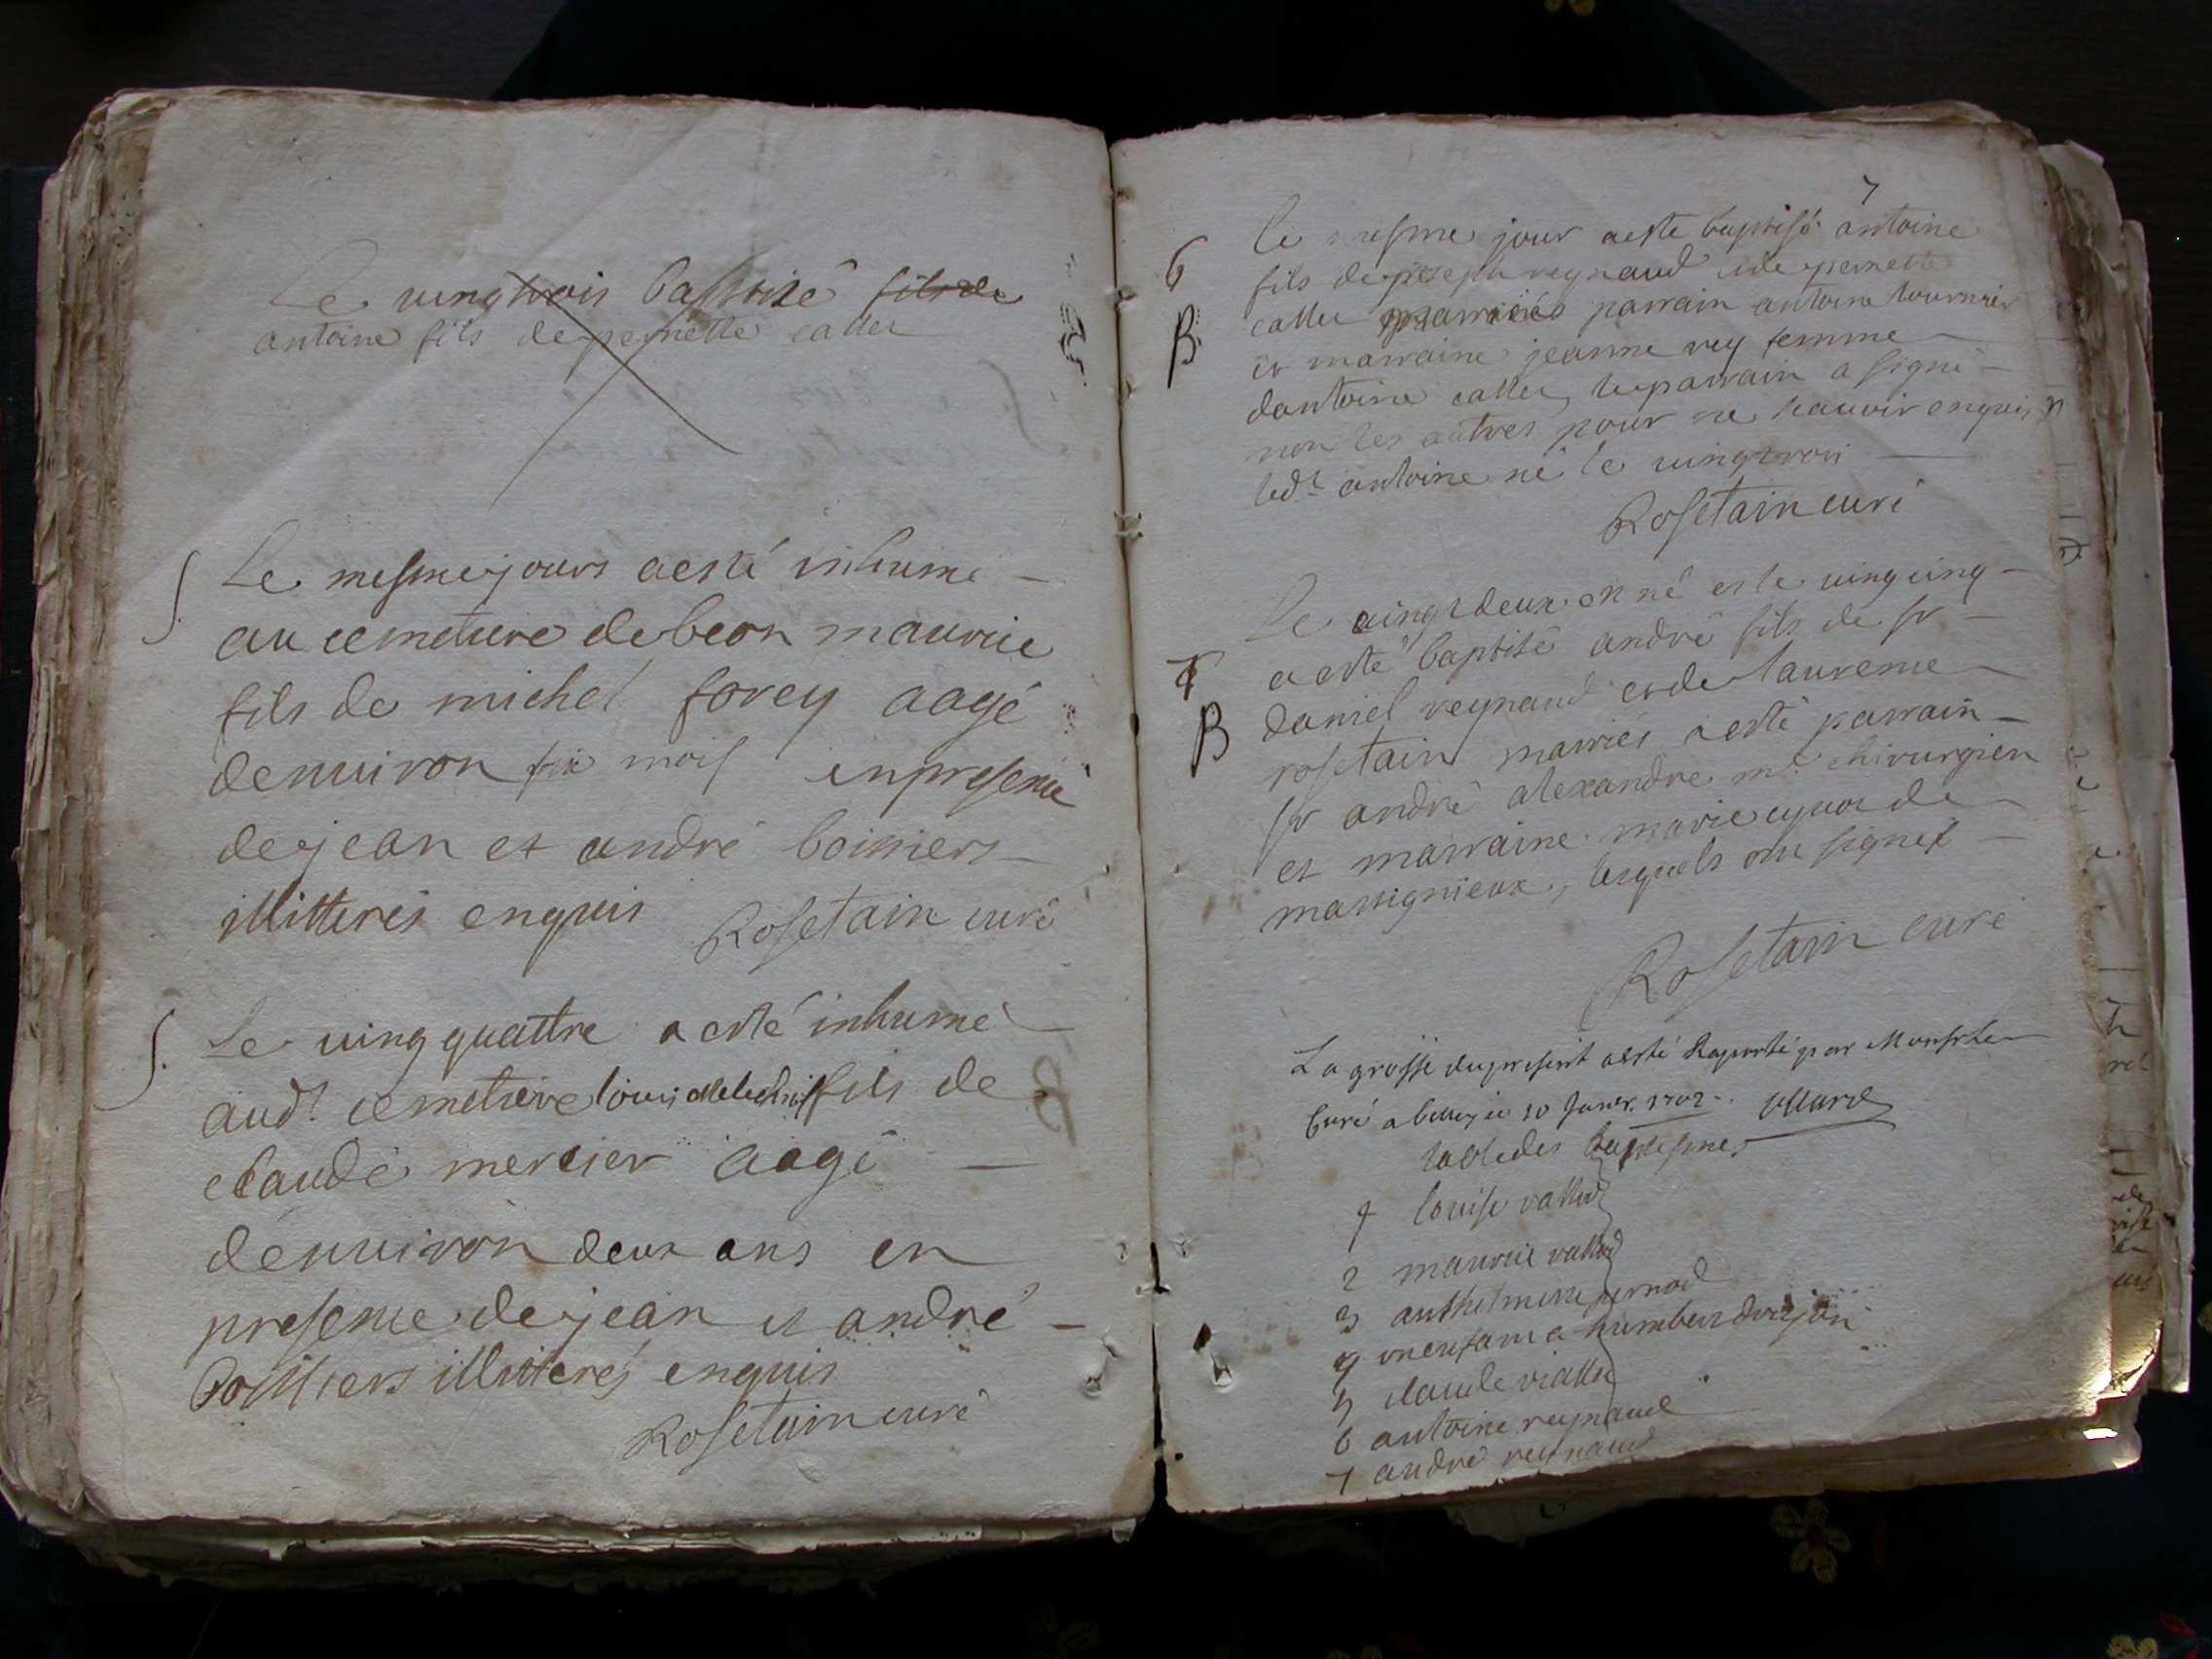 Le vingtrois baptisé fils de
antoine fils de pernette callet
S. Le mesme jours a esté inhumé
au cemetiere de beon maurice
fils de michel forey aagé
denuiron six mois en presence
de jean et andré boissiers
illitterés enquis Rosetain curé
S. Le uing quattre a esté inhumé
aud.t cemetiere louis fils de
claude mercier aagé
denuiron deux ans en
presence de jean et andré
boissiers illitterés enquis
Rosetain curé
7
6 le mesme jour a esté baptisé antoine
fils de joseph reynaud et de pernette
B callet mariés parrain antoine tournier
et marraine jeanne rey femme
dantoine callet, le parrain a signé
non les autres pour ne scauoir enquis
led.t antoine né le uingtroi
Rosetain curé
Le uingtdeux est né et le uingcinq
7 a esté baptisé andré fils de sr
B daniel reynaud et de laurence
rosetain mariés a esté parrain
sr andré alexandre m.e chirurgien
et marraine marie cyuot de
massignieux, lesquels ont signés
Rosetain curé
La grosse du present a esté Raporté par Monsr le
Curé a belley ce 10 Janvr. 1702.
table des baptesmes
1 louise vallod
2 maurice vallod
3 anthelmette pernod
4 un enfant a humbert
5 claude viallet
6 antoine reynaud
7 andré reynaud